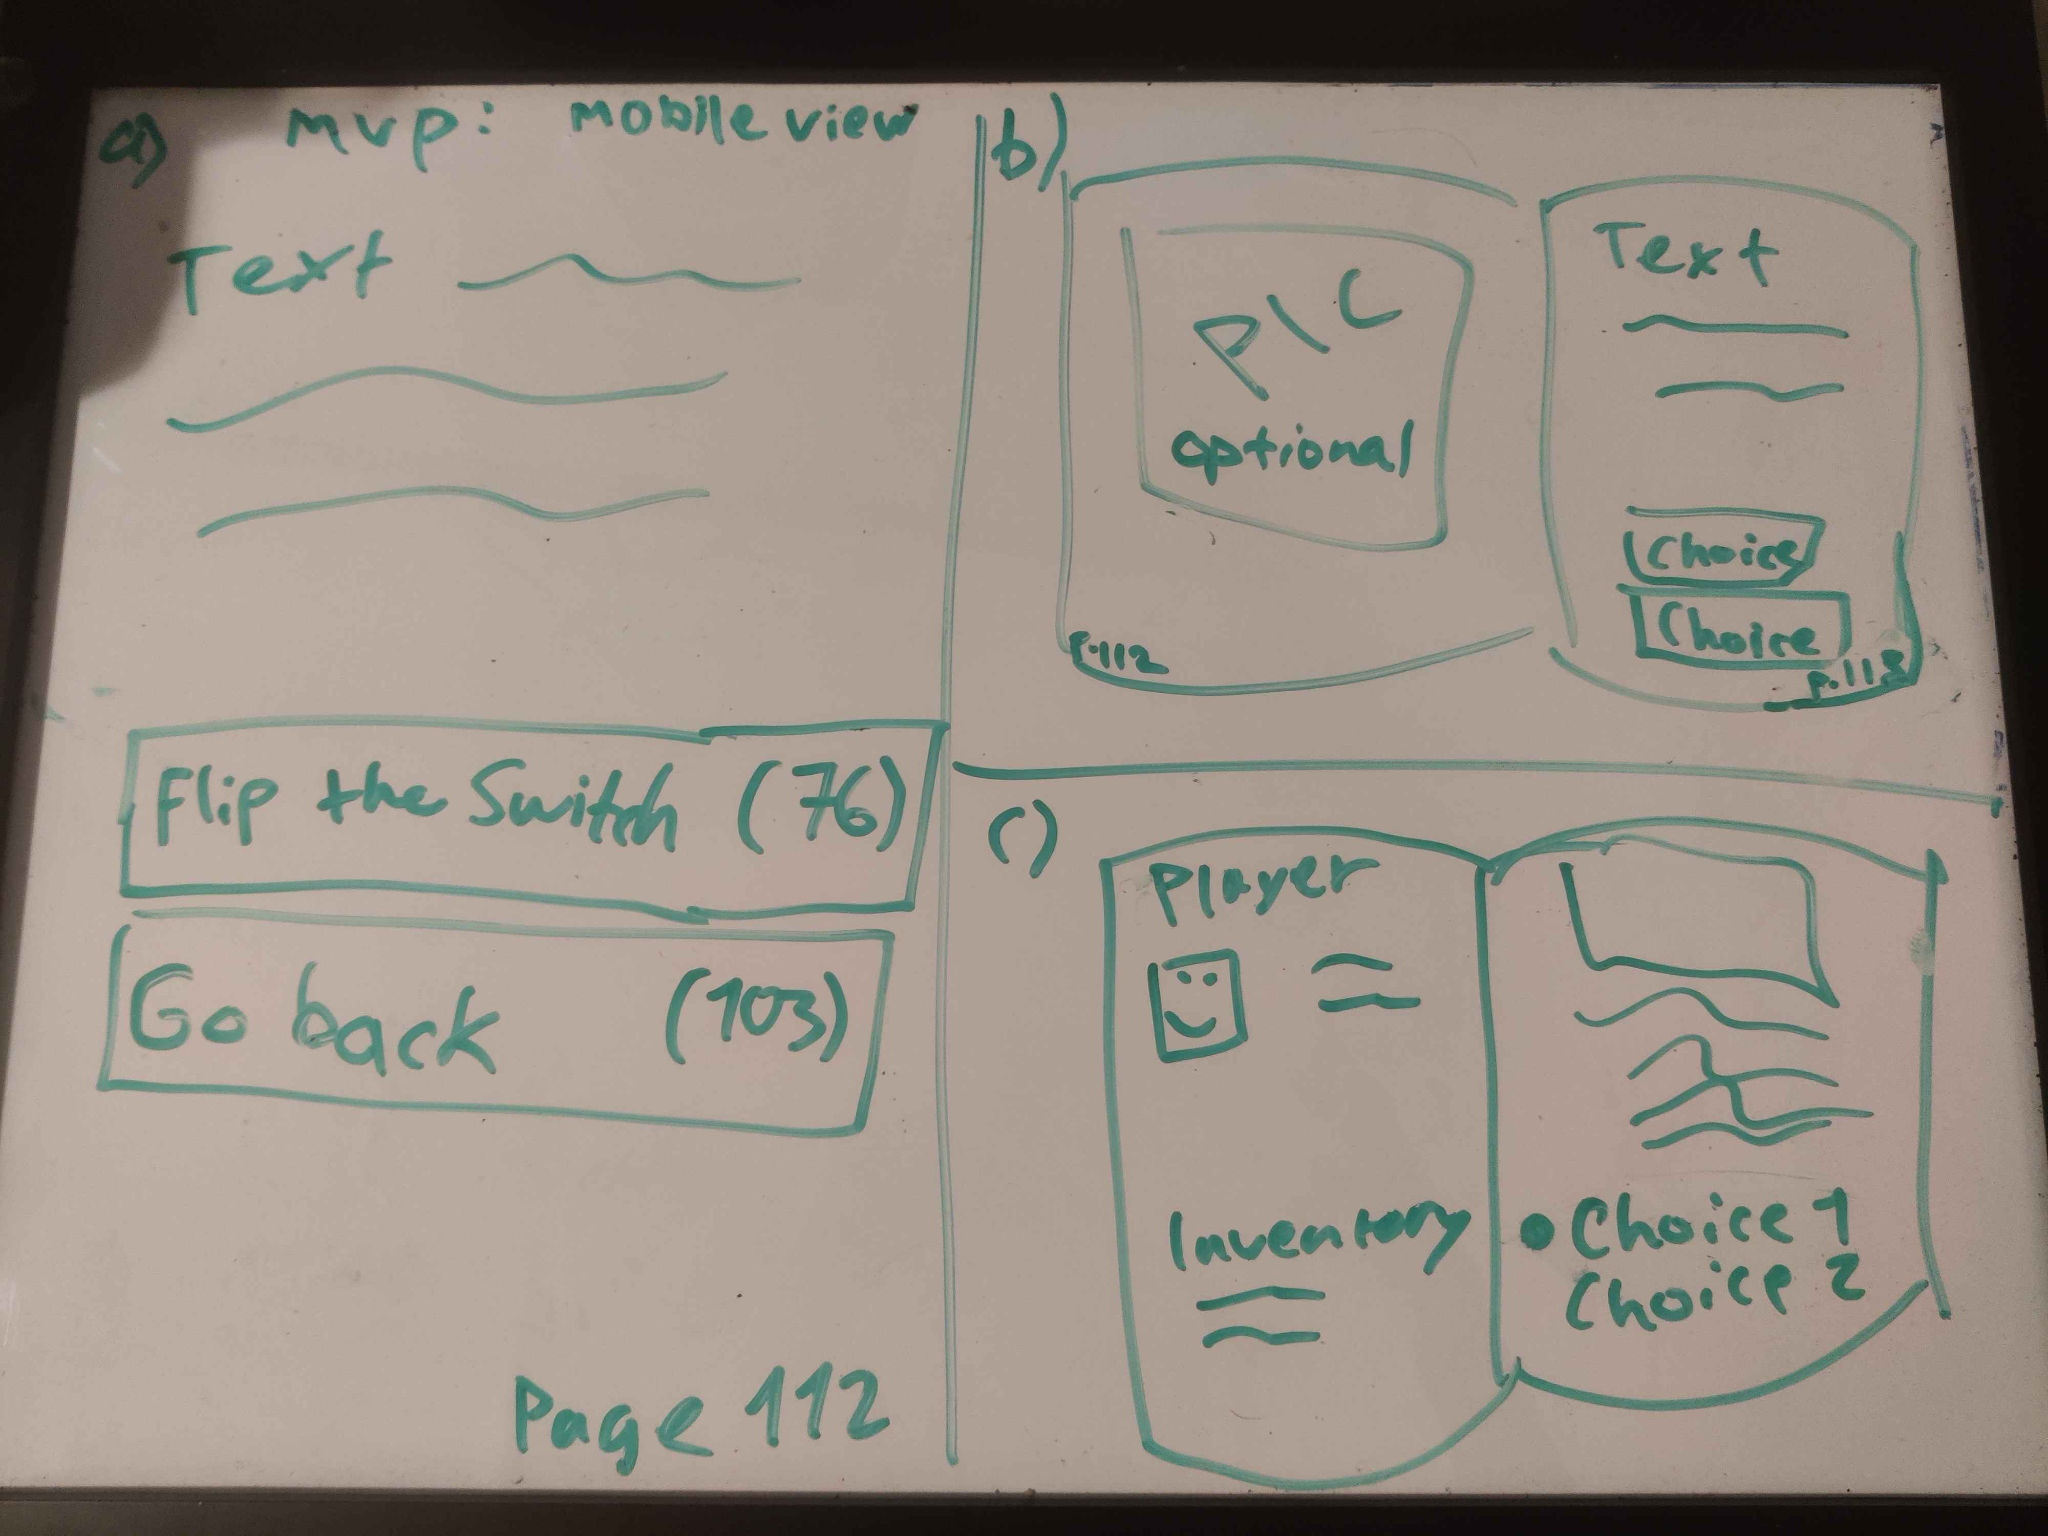 a) mvp: mobile view
Text
Flip the Switch (76)
Go back (103)
Page 112
b)
PIC
optional
p.112
Text
Choice
Choice
p.113
c)
Player
Inventory
Choice 1
Choice 2